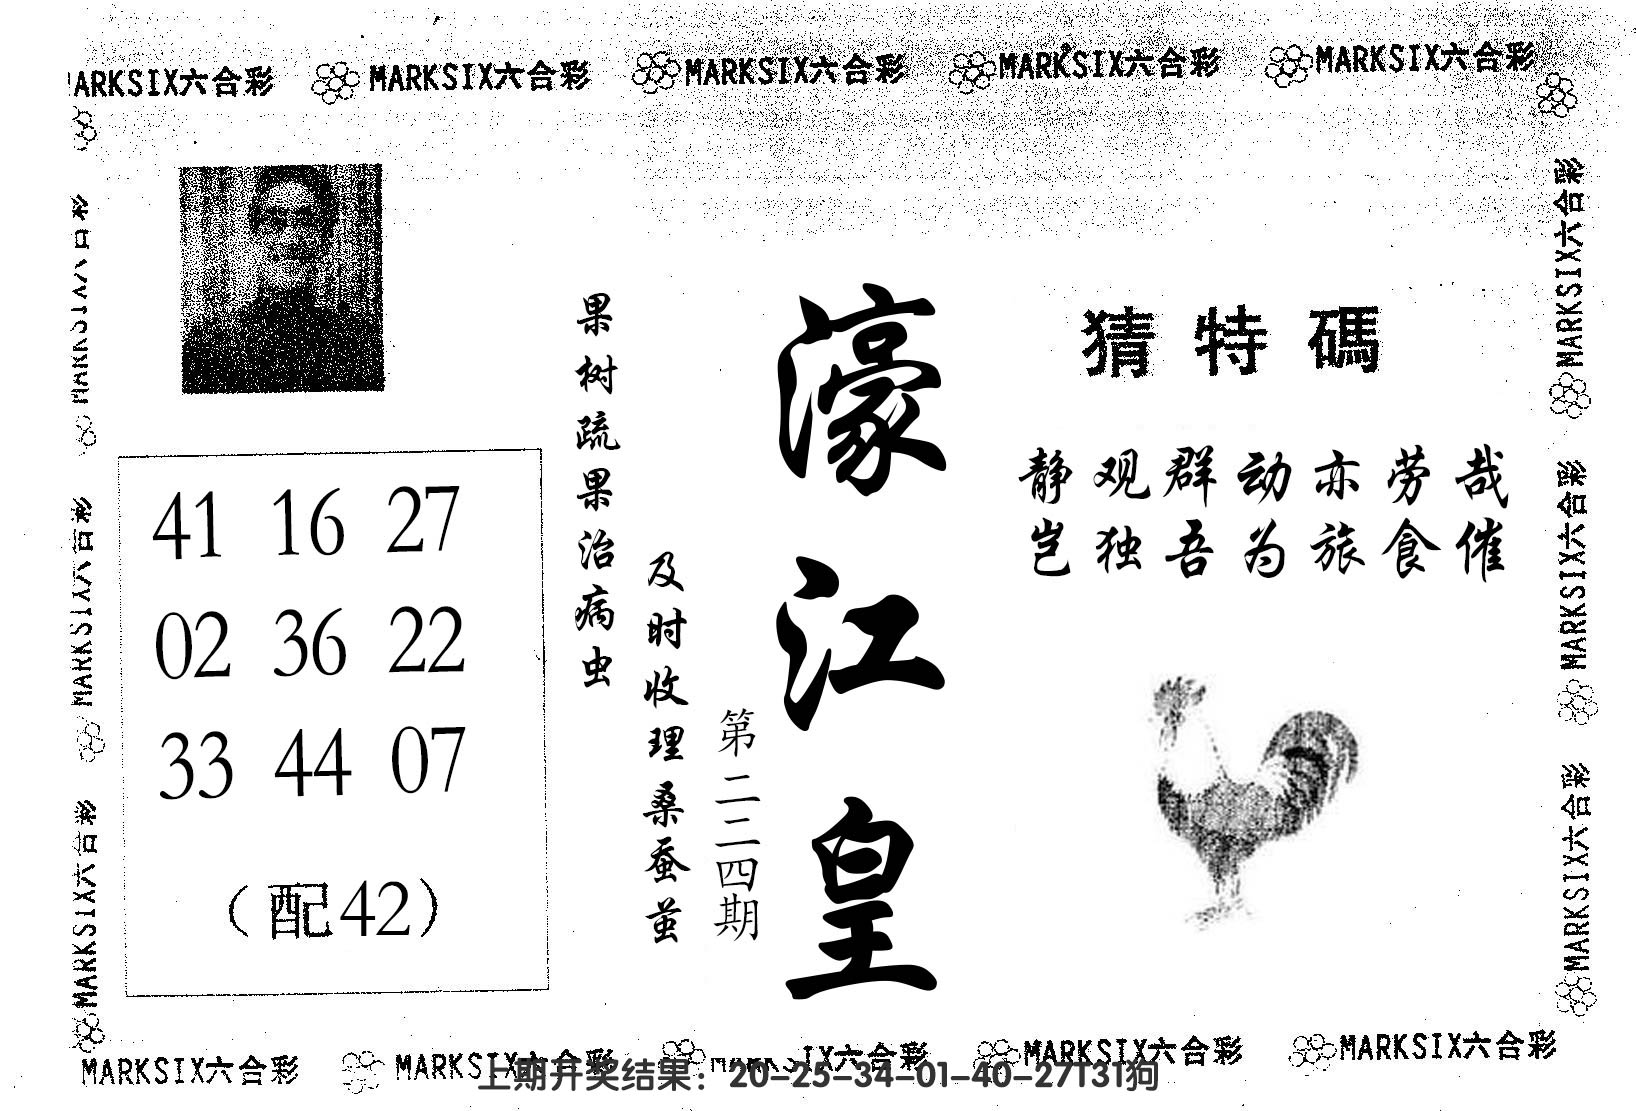 MARKSIX六合彩 MARKSIX六合彩 MARKSIX六合彩 MARKSIX六合彩 MARKSIX六合彩
MARKSIX六合彩
MARKSIX六合彩
MARKSIX六合彩
41 16 27
02 36 22
33 44 07
（配42）
果树疏果治病虫
及时收理桑蚕茧
第二二四期
濠江皇
猜特碼
静观群动亦劳哉
岂独吾为旅食催
MARKSIX六合彩
MARKSIX六合彩
MARKSIX六合彩
MARKSIX六合彩 MARKSIX六合彩 MARKSIX六合彩 MARKSIX六合彩 MARKSIX六合彩
上期开奖结果：20-25-34-01-40-27T31狗